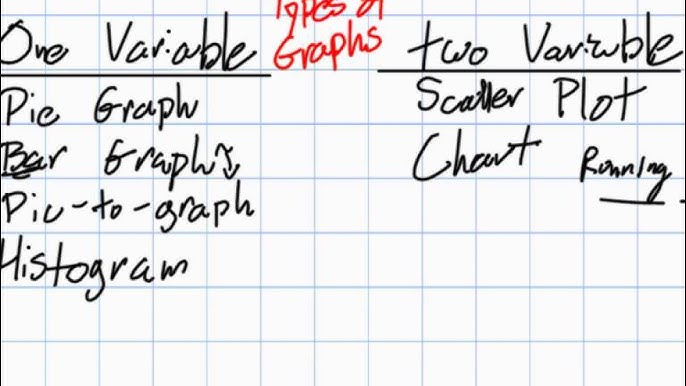 Types of
Graphs
One Variable
Pie Graph
Bar Graphs
Pic-to-graph
Histogram
two Variable
Scatter Plot
Chart Running